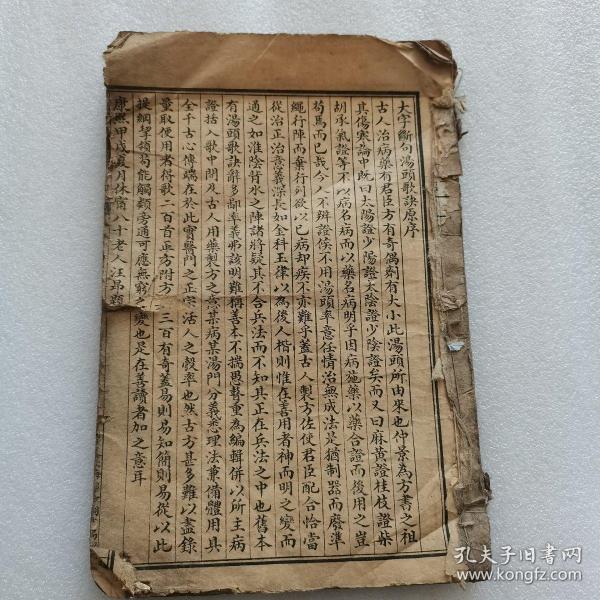 大字斷句湯頭歌訣原序
古人治病藥有君臣方有奇偶劑有大小此湯頭所由來也仲景為方書之祖
其傷寒論中既曰太陽證少陽證太陰證少陰證矣而又曰麻黃證桂枝證柴
胡承氣證等不以病名病而以藥名病明乎因病施藥以藥合證而後用之豈
苟焉而已哉今人不辨證候不用湯頭率意任情治無成法是猶制器而廢準
繩行陣而棄行列欲以已病却疾不亦難乎蓋古人製方佐使君臣配合恰當
從治正治意義深長如金科玉律以為後人楷則惟在善用者神而明之變而
通之如淮陰背水之陣諸將疑其不合兵法而不知其正在兵法之中也舊本
有湯頭歌訣辭多鄙率義弗該明難稱善本不揣愚瞽重為編輯併以所主病
證括入歌中間及古人用藥製方之
某病某湯門分義悉理法兼備體用具
全千古心傳端在於此實醫門之正宗活人之彀率也然古方甚多難以盡錄
量取便用者得歌二百首正方附方
三百有奇蓋易則易知簡則易從以此
提綱挈領苟能觸類旁通可應無窮之變也是在善讀者加之意耳
康熙甲戌夏月休寧八十老人汪昂題
孔夫子旧书网
www.kongfz.com